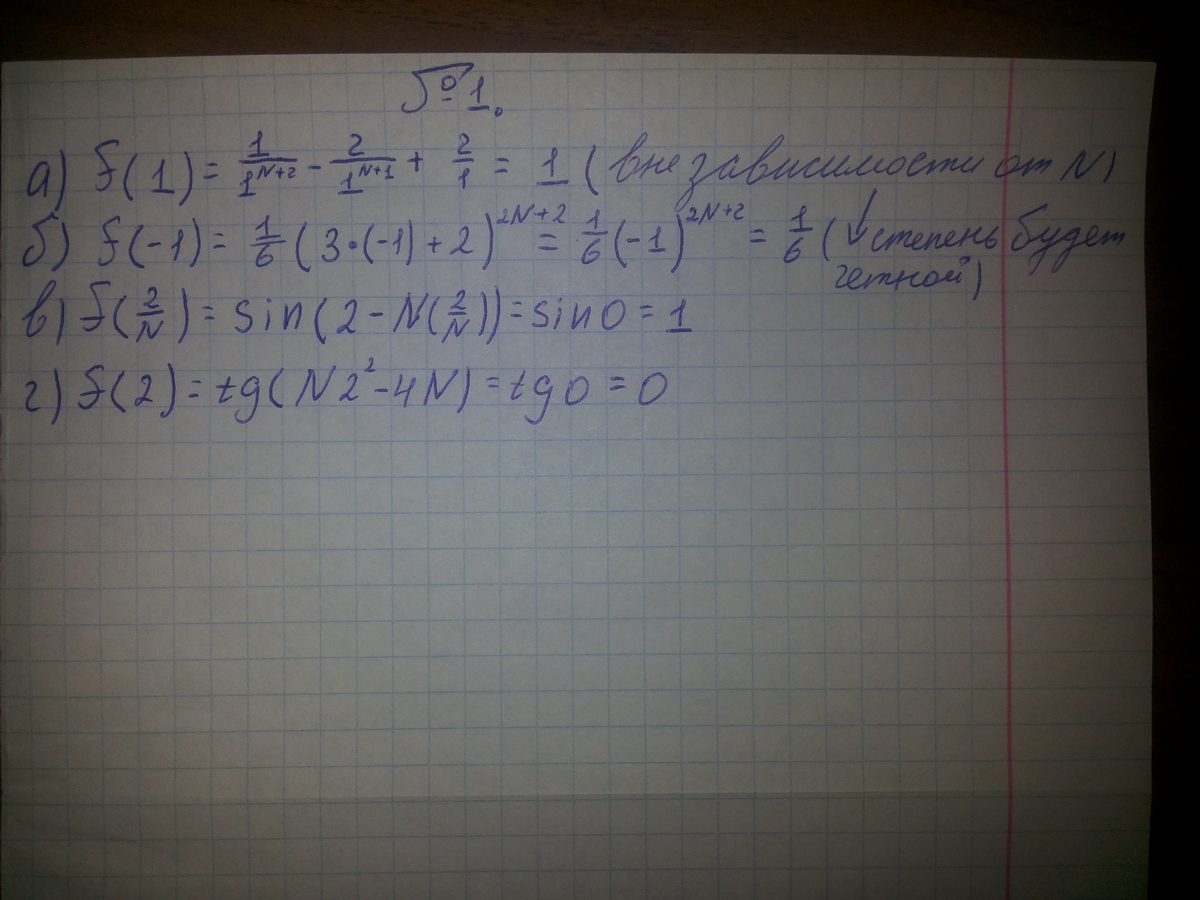 №1.
а) f(1) = 1/1^(N+2) - 2/1^(N+1) + 2/1 = 1 (вне зависимости от N)
б) f(-1) = 1/6 (3·(-1)+2)^(2N+2) = 1/6 (-1)^(2N+2) = 1/6 (↓ степень будет
четной)
в) f(2/N) = sin(2 - N(2/N)) = sin0 = 1
г) f(2) = tg(N2² - 4N) = tg0 = 0